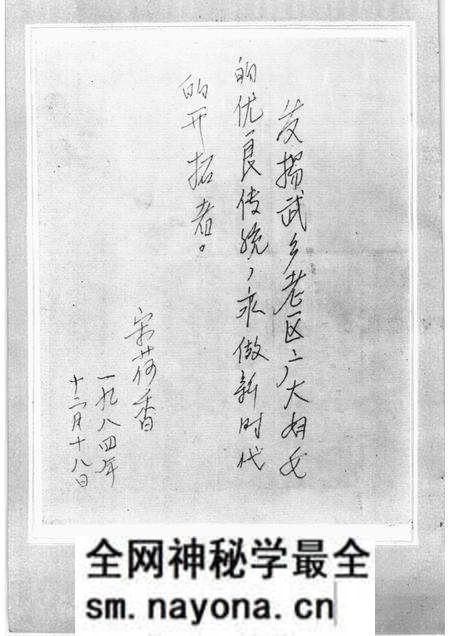 发揚武乡老区广大妇女
的优良传统，做新时代
的开拓者。
宋荷香
一九八四年
十二月十八日
全网神秘学最全
sm.nayona.cn